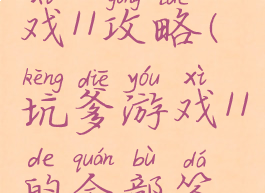 戏11攻略(
kēng diē yóu xì
坑爹游戏11
de quán bù dá
的全部答